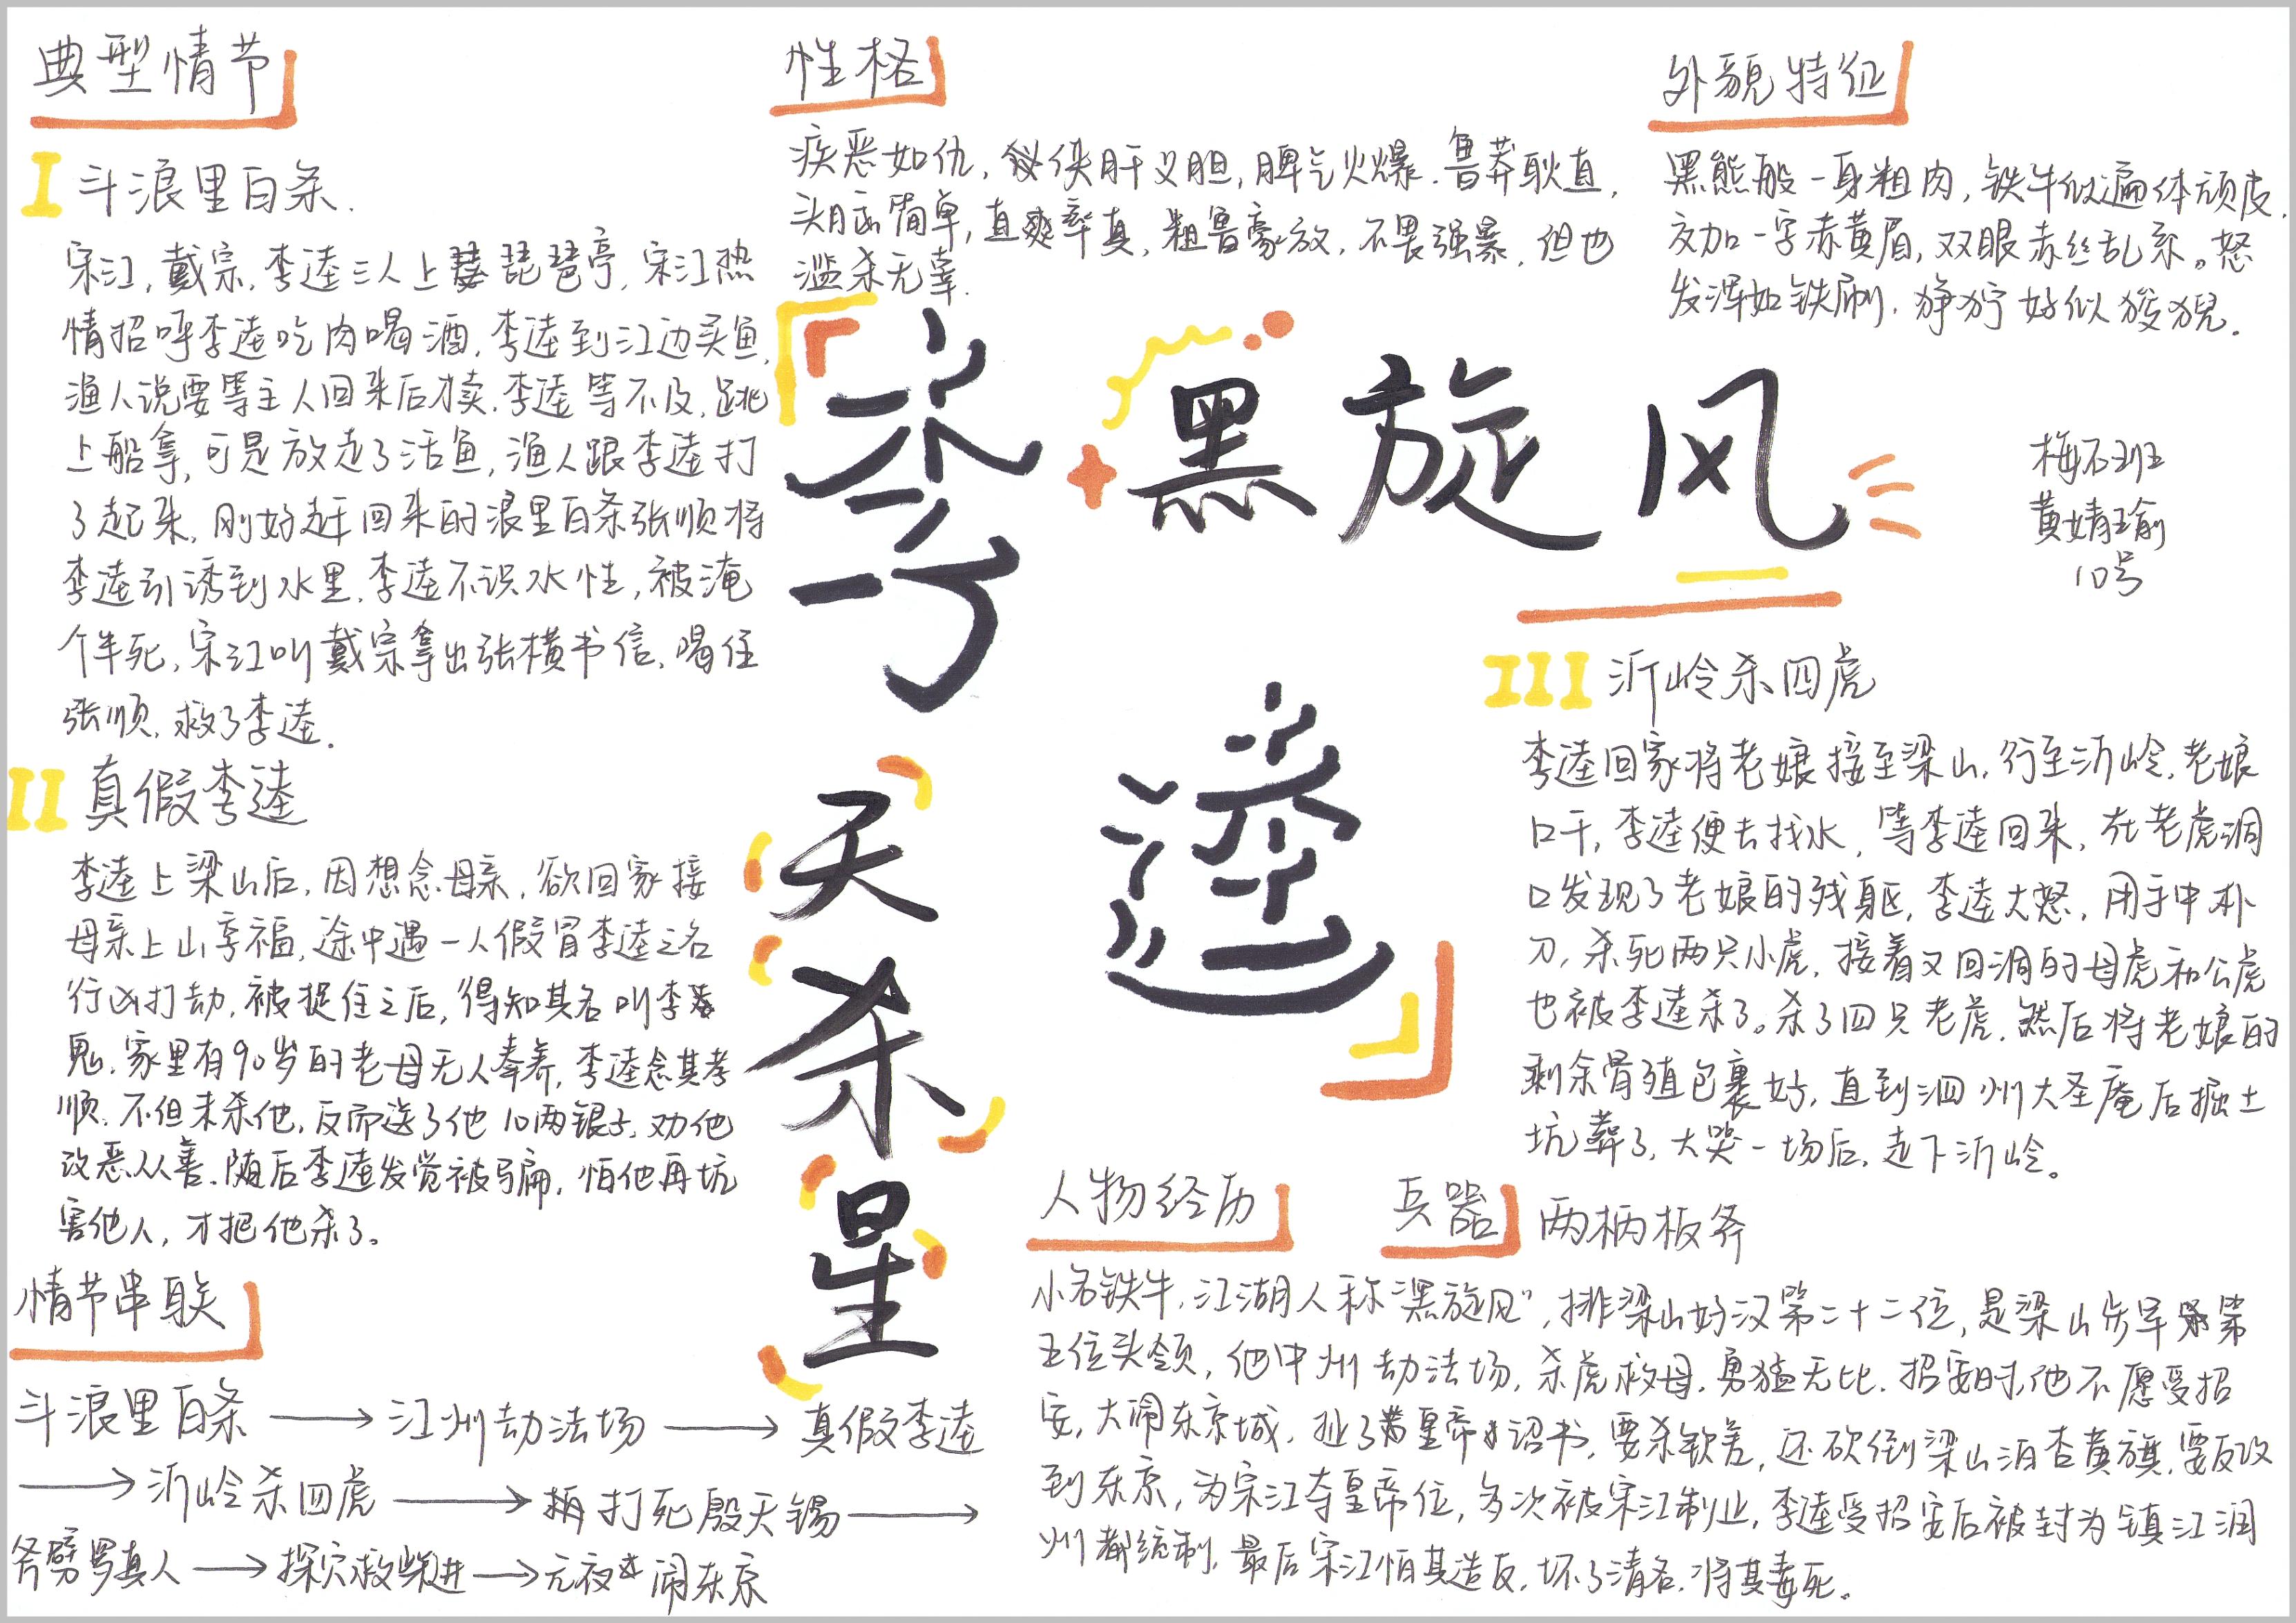 典型情节
I 斗浪里白条.
宋江,戴宗,李逵三人上琵琶亭,宋江热
情招呼李逵吃肉喝酒,李逵到江边买鱼,
渔人说要等主人回来后才卖,李逵等不及,跳
上船拿,可是放走了活鱼,渔人跟李逵打
了起来,刚好赶回来的浪里白条张顺将
李逵引诱到水里,李逵不识水性,被淹
个半死,宋江叫戴宗拿出张横书信,喝住
张顺,救了李逵.
II 真假李逵
李逵上梁山后,因想念母亲,欲回家接
母亲上山享福,途中遇一人假冒李逵之名
行凶打劫,被捉住之后,得知其名叫李
鬼,家里有90岁的老母无人奉养,李逵念其孝
顺,不但未杀他,反而送了他10两银子,劝他
改恶从善.随后李逵发觉被骗,怕他再坑
害他人,才把他杀了。
情节串联
斗浪里百条→江州劫法场→真假李逵
→沂岭杀四虎→打死殷天锡→
斧劈罗真人→探穴救柴进→元夜闹东京
性格
疾恶如仇,侠肝义胆,脾气火爆.鲁莽耿直,
头脑简单,直爽率真,粗鲁豪放,不畏强暴,但也
滥杀无辜.
外貌特征
黑熊般一身粗肉,铁牛似遍体顽皮,
交加一字赤黄眉,双眼赤丝乱系。怒
发浑如铁刷,狰狞好似狻猊.
李逵
黑旋风
天杀星
梅石班
黄婧瑜
10号
III 沂岭杀四虎
李逵回家将老娘接至梁山,行至沂岭,老娘
口干,李逵便去找水,等李逵回来,在老虎洞
口发现了老娘的残躯,李逵大怒,用手中朴
刀,杀死两只小虎,接着又回洞的母虎和公虎
也被李逵杀了。杀了四只老虎,然后将老娘的
剩余骨殖包裹好,直到泗州大圣庵后掘土
坑葬了,大哭一场后,走下沂岭。
人物经历
兵器 两柄板斧
小名铁牛,江湖人称“黑旋风”,排梁山好汉第二十二位,是梁山步军第
五位头领,他中州劫法场,杀虎救母,勇猛无比.招安时,他不愿受招
安,大闹东京城,扯了皇帝诏书,要杀钦差,还砍倒梁山泊杏黄旗,要反攻
到东京,为宋江夺皇帝位,多次被宋江制止,李逵受招安后被封为镇江润
州都统制,最后宋江怕其造反,坏了清名,将其毒死。